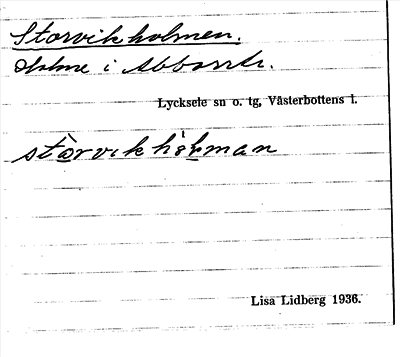 Storvikholmen.
Holme i Abborrtr.
Lycksele sn o. tg, Västerbottens l.
stòrvikhòḷman
Lisa Lidberg 1936.